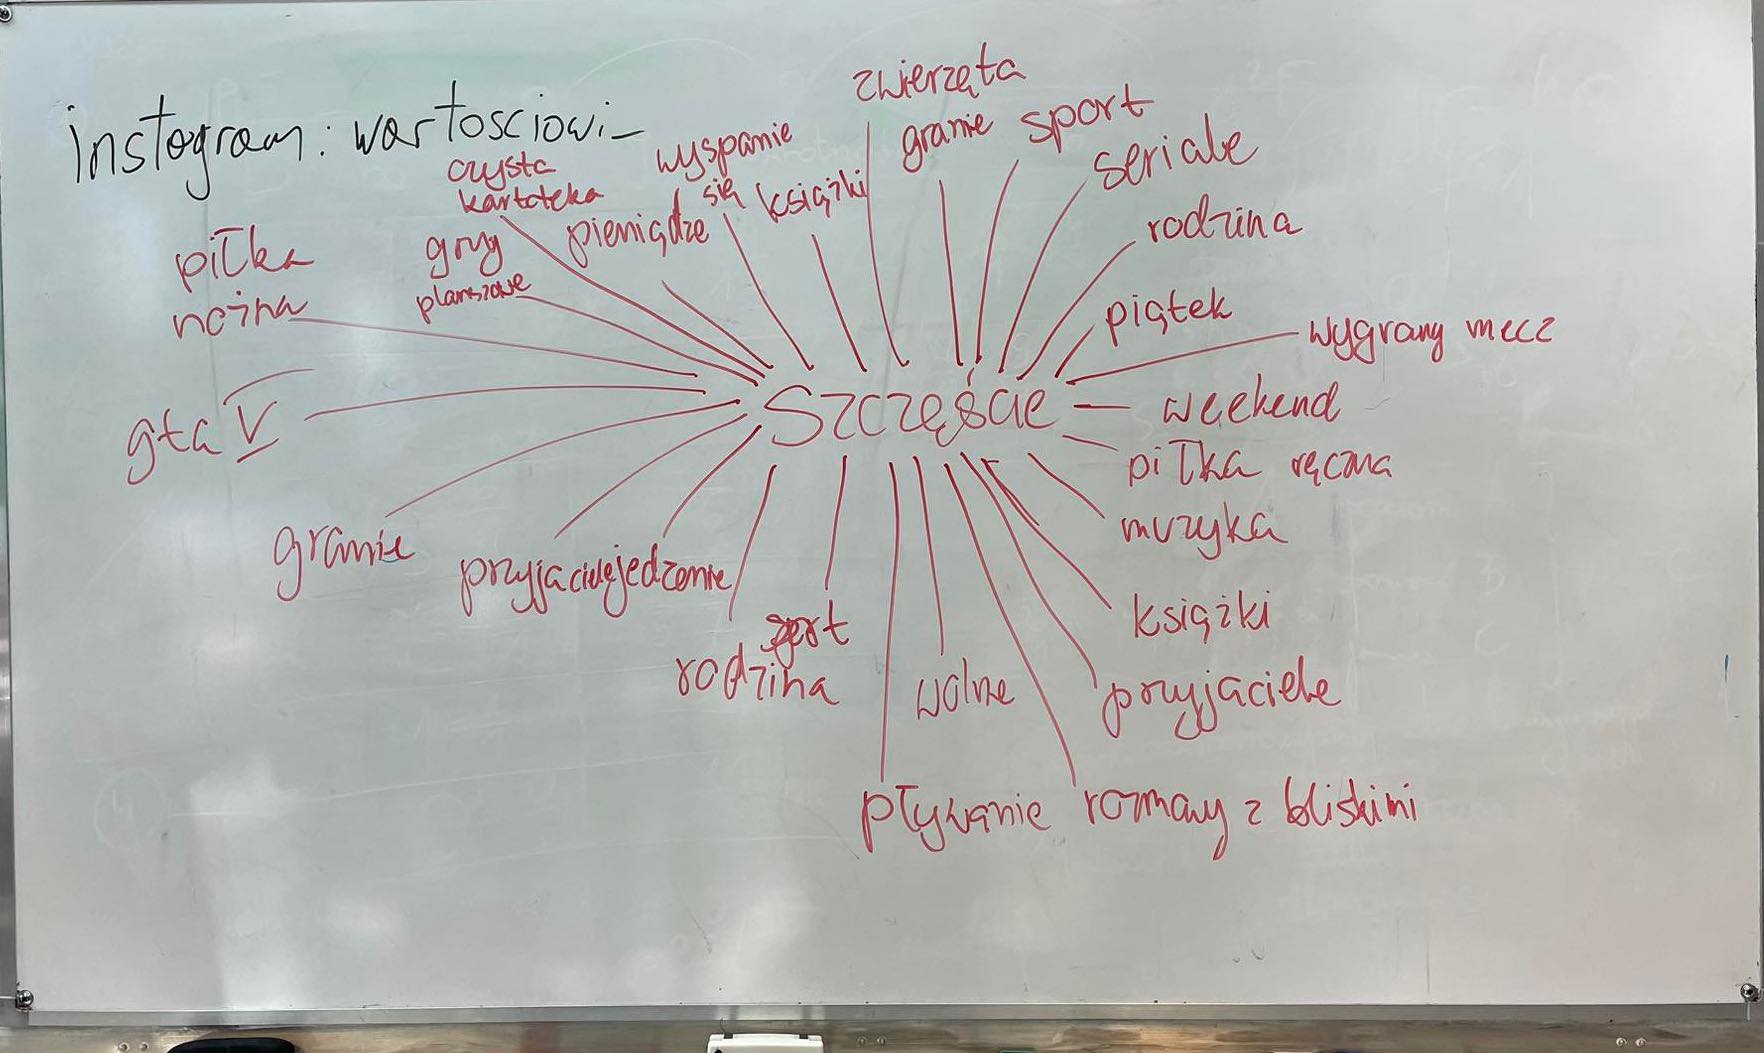 instogram: wartosciowi_
zwierzęta
granie
sport
seriale
rodzina
piątek
wygrany mecz
weekend
piłka ręczna
muzyka
książki
przyjaciele
rozmowy z bliskimi
pływanie
wolne
sport
rodzina
jedzenie
przyjaciele
granie
gta V
piłka
nożna
gry
planszowe
czysta
kartoteka
pieniądze
wyspanie
się
książki
Szczęście